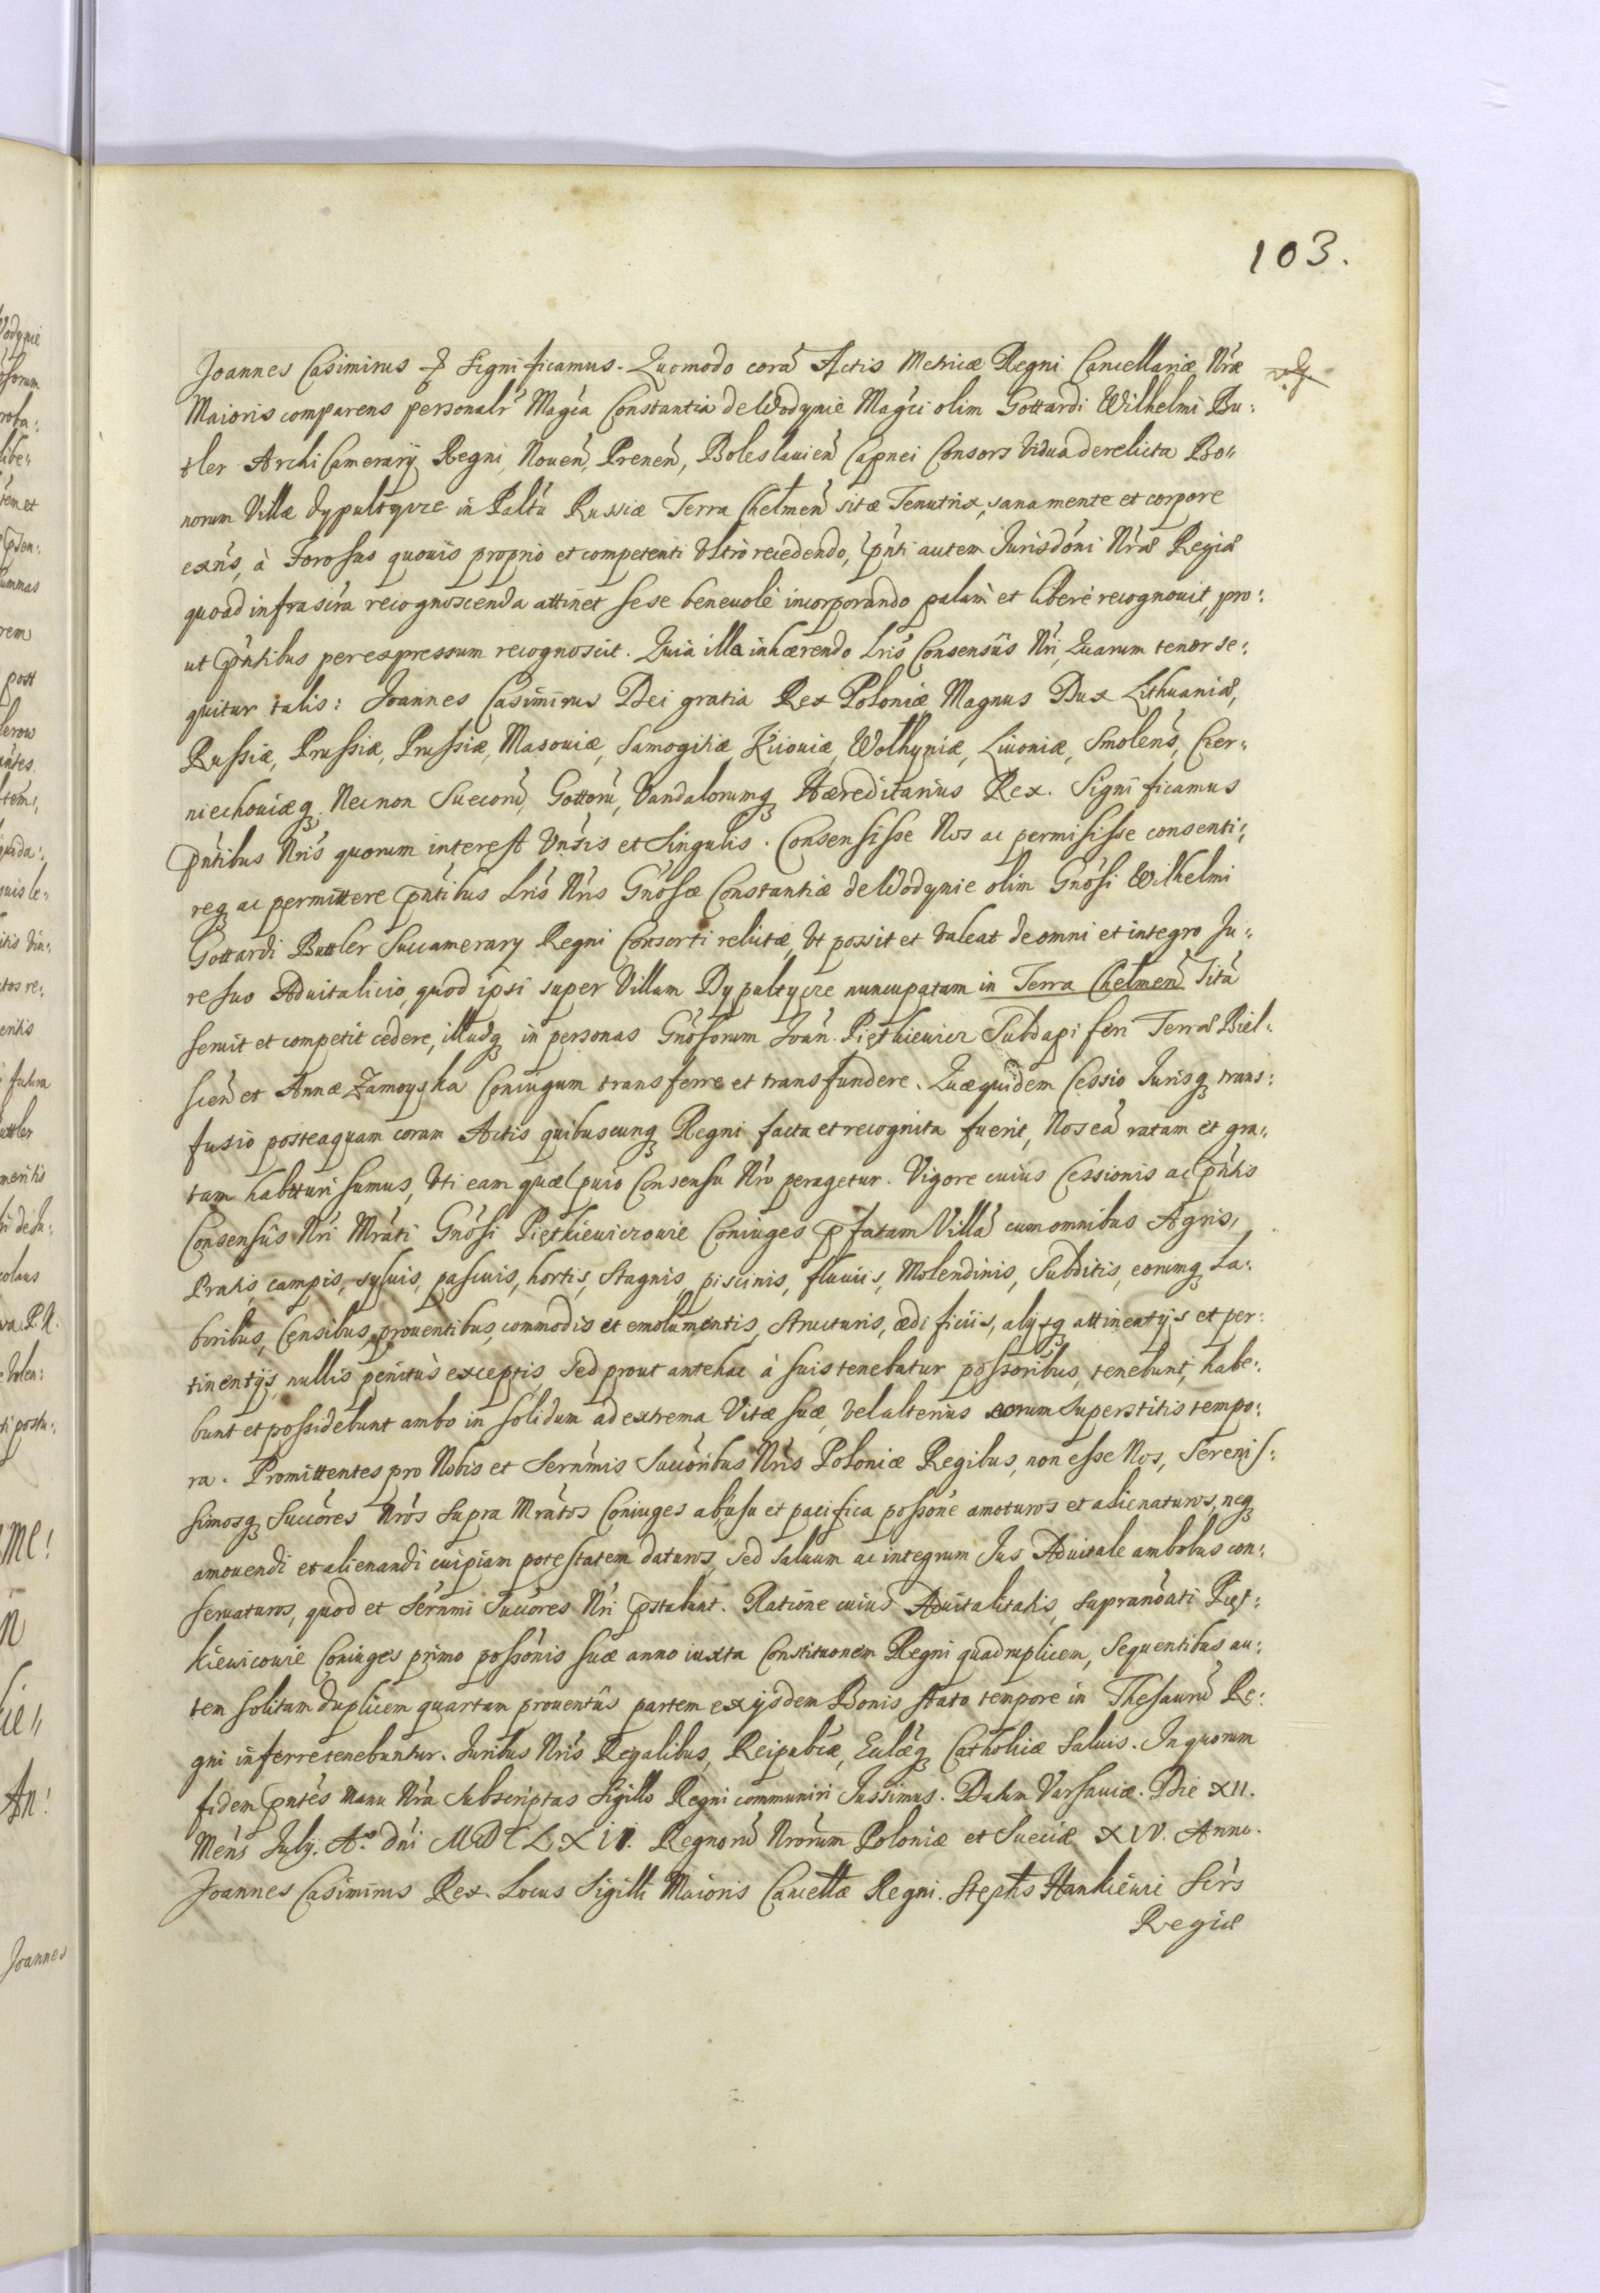 103.
Joannes Casimirus Significamus. Quomodo corã Actis Metricæ Regni Cancellariæ Nræ
Maioris comparens personalr Magca Constantia de Wodynie Magci olim Gottardi Wilhelmi Bu:
tler Archi Camerarÿ Regni, Noven, Prenen, Boleslavien Capnei Consors Vidua derelicta Bo:
norum Villæ Dypultycze in Paltu Russiæ Terra Chelmen sitæ Tenutrix, sana mente et corpore
exns, à Foro suo quovis proprio et competenti Vltro recedendo, pnti autem Jurisdoni Nræ Regiæ
quoad infrascra recognoscenda attinet sese benevolè incorporando palam et liberè recognovit, pro:
ut pntibus per expressum recognoscit. Quia illa inhærendo Lris Consensûs Nri, Quarum tenor se:
quitur talis: Joannes Casimirus Dei gratia Rex Poloniæ Magnus Dux Lithuaniæ,
Russiæ, Prussiæ, Prussiæ, Masoviæ, Samogitiæ, Kiioviæ, Wolhyniæ, Livoniæ, Smolens, Czer:
niechoviæq, Necnon Suecorũ, Gottorũ, Vandalorumq Hæreditarius Rex. Significamus
pntibus Nris quorum interest Vnsis et Singulis. Consensisse Nos ac permisisse consenti:
req ac permittere pntibus Lris Nris Gnosæ Constantiæ de Wodynie olim Gnosi Wilhelmi
Gottardi Buttler Succamerarÿ Regni Consorti relictæ, Vt possit et valeat de omni et integro Ju:
re suo Advitalicio, quod ipsi super Villam Dypultycze nuncupatam in Terra Chelmen Sitã
servit et competit cedere, illudq in personas Gnosorum Joan. Piętkiewicz Subdapiferi Terræ Biel:
scen et Annæ Zamoyska Coniugum transferre et transfundere. Quæquidem Cessio Jurisq trans:
fusio posteaquam coram Actis quibuscunq Regni facta et recognita fuerit, Nos eã ratam et gra:
tam habituri sumus, Vti eam quæ pvio Consensu Nro peragetur. Vigore cuius Cessionis ac pntis
Consensûs Nri Mrati Gnosi Piętkiewiczowie Coniuges pfatam Villã cum omnibus Agris,
Pratis, campis, sylvis, pascuis, hortis, Stagnis, piscinis, fluviis, Molendinis, Subditis, eorumq La:
boribus, Censibus, proventibus, commodis et emolumentis, Structuris, ædificiis, alÿsq attinentÿs et per:
tinentÿs, nullis penitùs exceptis, Sed prout antehac à suis tenebatur possoribus, tenebunt, habe:
bunt et possidebunt ambo in solidum ad extrema Vitæ suæ, vel alterius eorum Superstitis tempo:
ra. Promittentes pro Nobis et Sernmis Succoribus Nris Poloniæ Regibus, non esse Nos, Serenis:
simosq Succores Nros Supra Mratos Coniuges ab usu et pacifica possone amoturos et alienaturos, neq
amovendi et alienandi cuipiam potestatem daturos, Sed salvum ac integrum Jus Advitale ambobus con:
servaturos, quod et Sernmi Succores Nri pstabunt. Ratione cuius Advitalitatis, Supranoati Pięt:
kiewicowie Coniuges primo possonis suæ anno iuxta Constituonem Regni quadruplicem, Sequentibus au:
tem solitam duplicem quartam proventûs partem ex ijsdem Bonis stato tempore in Thesaurũ Re:
gni inferre tenebuntur. Juribus Nris Regalibus, Reipubcæ, Eccliæq Catholicæ Salvis. In quorum
fidem pntes Manu Nra Subscriptas Sigillo Regni communiri Jussimus. Datum Varsaviæ. Die XII.
Mens July. Ao. Dni MDCLXII. Regnorũ Nrorum Poloniæ et Sueciæ XIV. Anno.
Joannes Casimirus Rex. Locus Sigilli Maioris Cancellæ Regni. Stephs Hankiewi Scrs
Regiæ